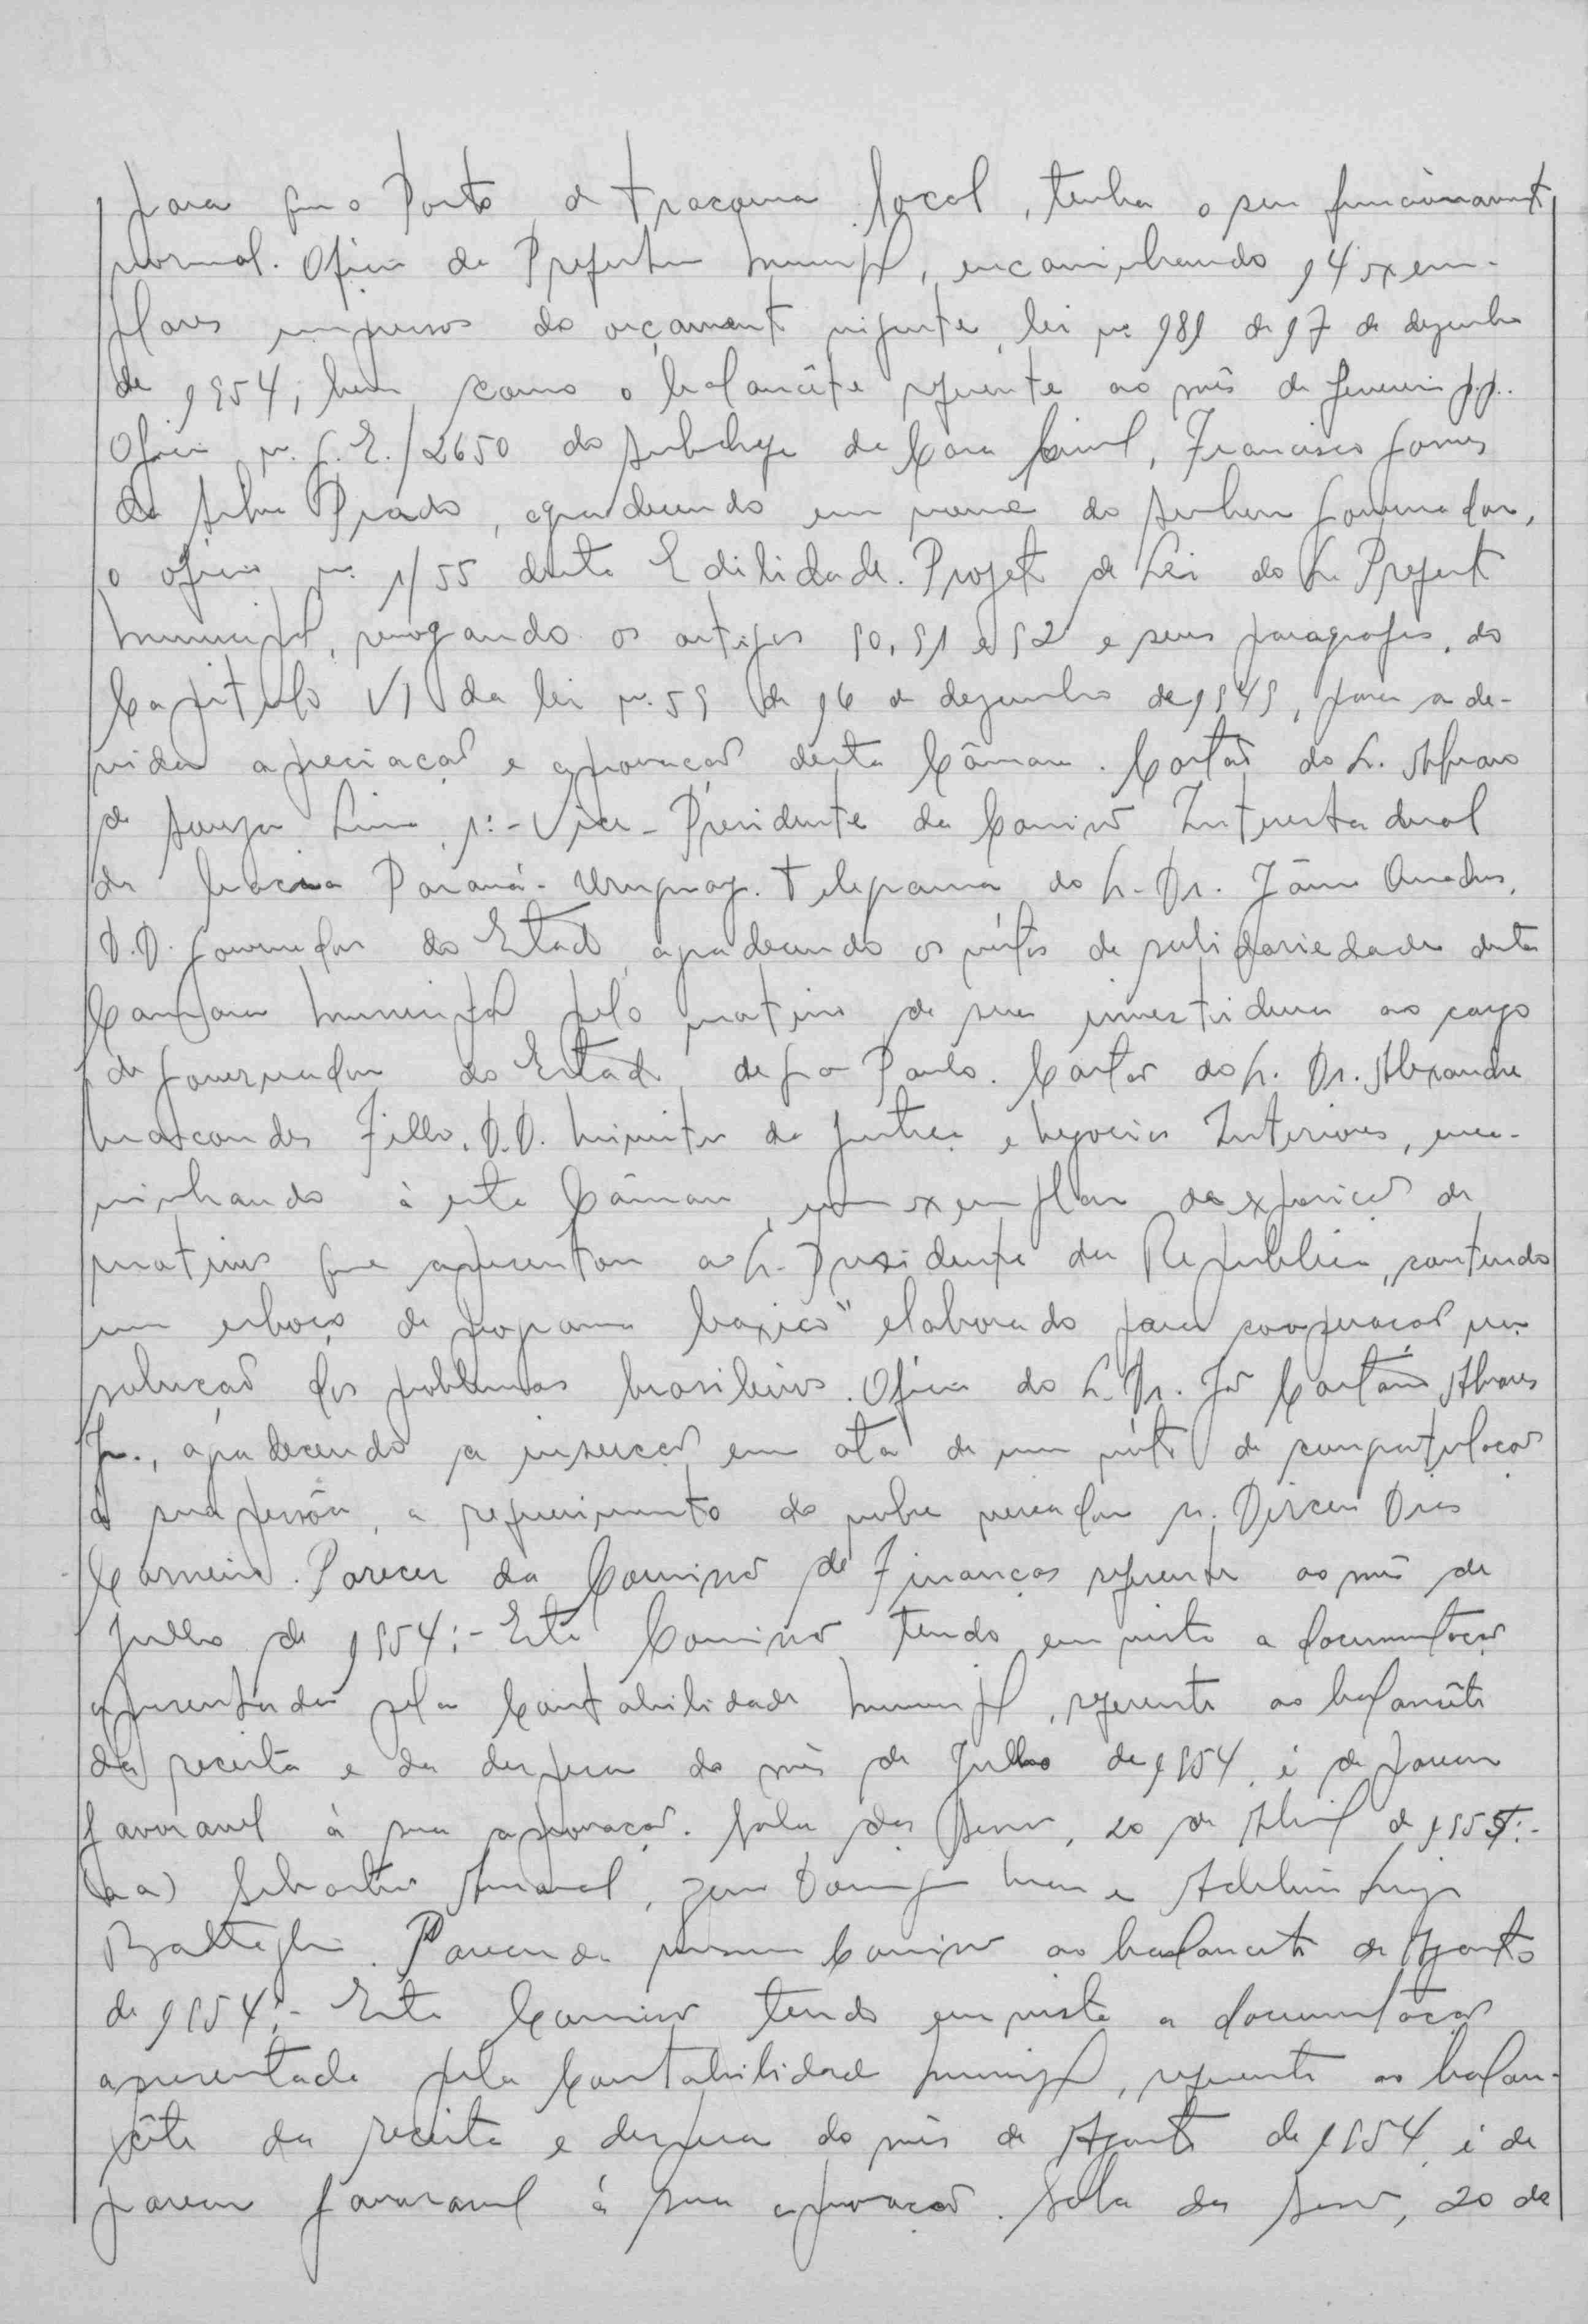 para que o Posto de tracoma local, tenha o seu funcionamento
normal. Oficio da Prefeitura Municipal, encaminhando 14 exem-
plares impressos do orçamento vigente, lei nº 181 de 17 de dezembro
de 1954, bem como o balancête referente ao mês de fevereiro p.p.
Oficio n. S.E./2650 do Subchefe da Casa Civil, Francisco Gomes
da Silva Prado, agradecendo em nome do Senhor Governador,
o oficio nº 1/55 desta Edilidade. Projeto de Lei do Sr. Prefeito
Municipal, revogando os artigos 90, 91 e 92 e seus paragrafos, do
Capitulo VI da lei n. 59 de 16 de dezembro de 1949, para a de-
vida apreciação e aprovação desta Câmara. Cartão do Sr. Alvaro
de Souza Lima, 1º-Vice-Presidente da Comissão Interestadual
da bacia Paraná-Uruguay. Telegrama do Sr. Dr. Jânio Quadros,
D.D. Governador do Estado, agradecendo os vótos de solidariedade desta
Camara Municipal pelo motivo de sua investidura ao cargo
de Governador do Estado de São Paulo. Cartão do Sr. Dr. Alexandre
Marcondes Filho, D.D. Ministro da Justiça e Negocios Interiores, enca-
minhando à esta Câmara, um exemplar da exposição de
motivos que apresentou ao Sr. Presidente da Republica, contendo
um esboço de programa basico" elaborado para cooperação na
solução dos problemas brasileiros. Oficio do Sr. Dr. José Caetano Alvares
Jr., agradecendo a inserção em ata de um vóto de congratulação
á sua pessôa, a requerimento do nobre vereador sr. Dirceu Dias
Carneiro. Parecer da Comissão de Finanças referente ao mês de
Julho de 1954:- Esta Comissão tendo em vista a documentação
apresentada pela Contabilidade Municipal, referente ao balancête
da receita e da despesa do mês de Julho de 1954, é de parecer
favoravel à sua aprovação. Sala das Sessões, 20 de Abril de 1955:-
(aa) Sebastião Amaral, Domingos e Adelino Luiz
Battaglia. Parecer da mesma Comissão ao balancete de Agosto
de 1954:- Esta Comissão tendo em vista a documentação
apresentada pela Contabilidade Municipal, referente ao balan-
cête da receita e despesa do mês de Agosto de 1954, é de
parecer favoravel á sua aprovação. Sala das Sessões, 20 de